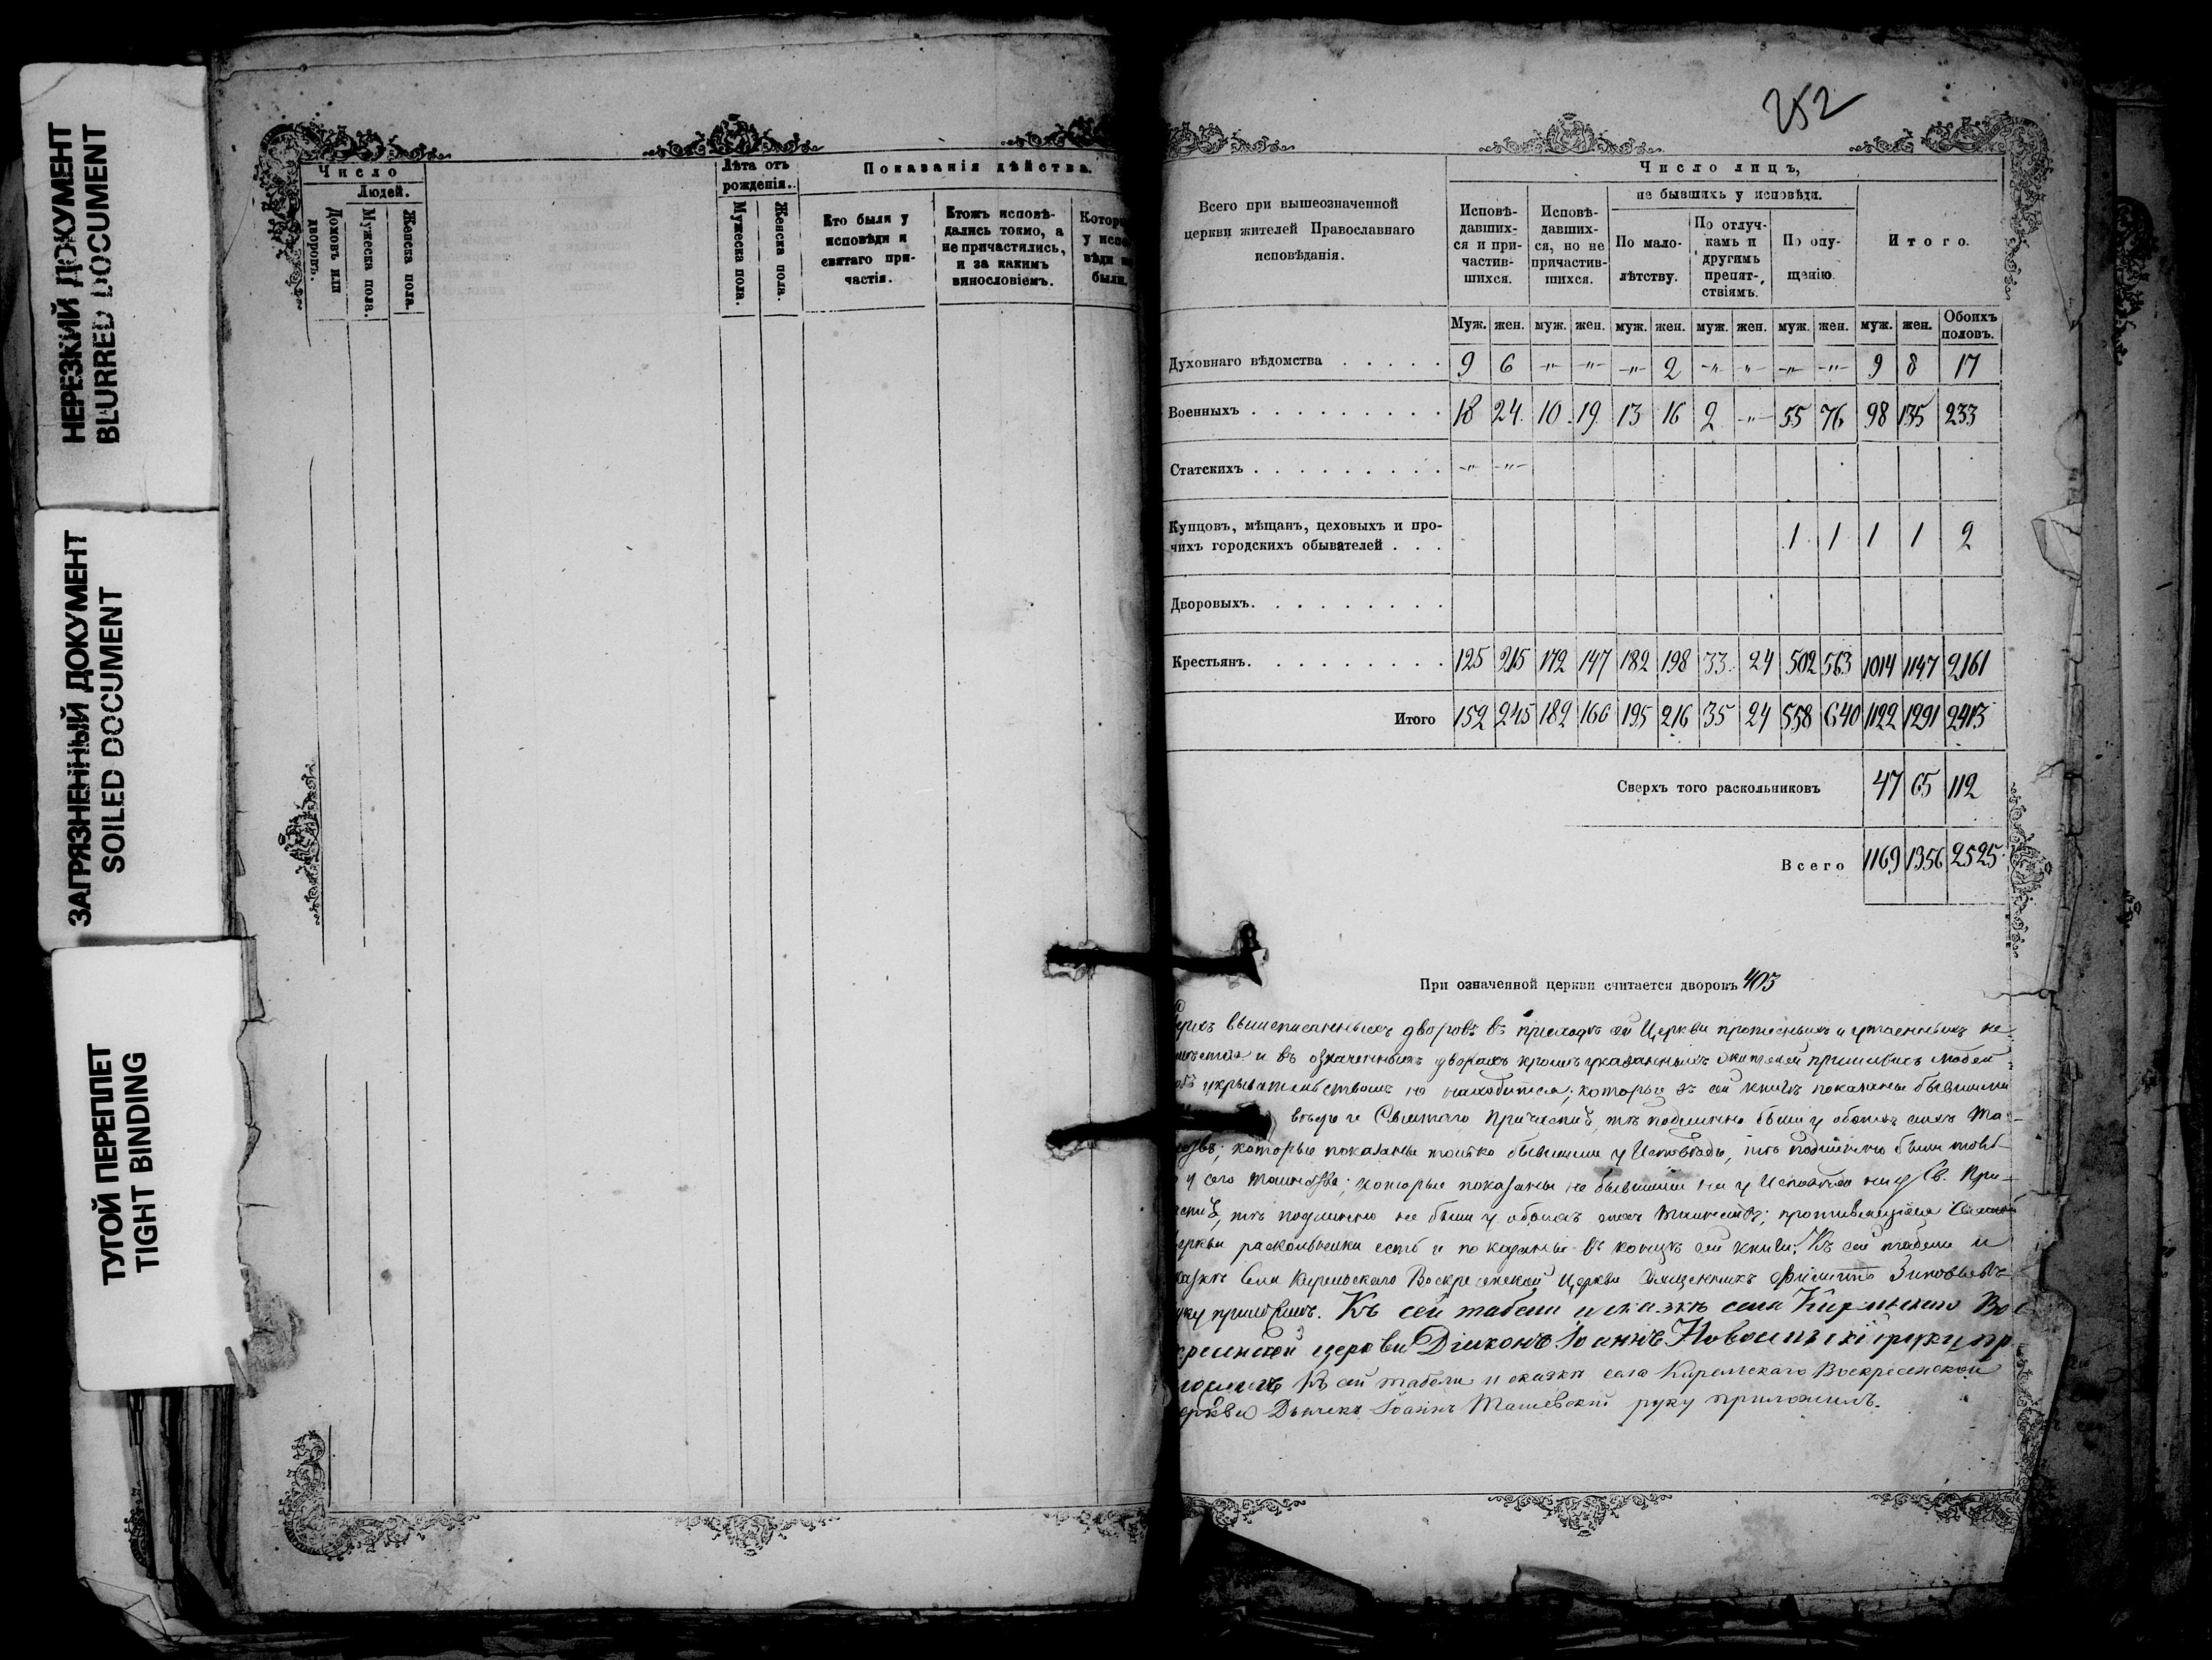 НЕРЕЗКИЙ ДОКУМЕНТ
BLURRED DOCUMENT
ЗАГРЯЗНЕННЫЙ ДОКУМЕНТ
SOILED DOCUMENT
ТУГОЙ ПЕРЕПЛЕТ
TIGHT BINDING
Число
Людей.
Домовъ или дворовъ.
Мужеска пола.
Женска пола.
Лѣта отъ рожденія.
Мужеска пола.
Женска пола.
Показанія дѣйства.
Кто были у исповѣди и святаго причастія.
Ктожъ исповѣдались токмо, а не причастились, и за какимъ винословіемъ.
252
Всего при вышеозначенной
церкви жителей Православнаго
исповѣданія.
Число лицъ,
Исповѣдавшихся и причастившихся.
Исповѣдавшихся, но не причастившихся.
не бывшихъ у исповѣди.
По малолѣтству.
По отлучкамъ и другимъ препятствіямъ.
По опущенію.
Итого.
Муж. жен. муж. жен. муж. жен. муж. жен. муж. жен. муж. жен. Обоихъ половъ.
Духовнаго вѣдомства 9 6 -"- -"- -"- 2 -"- -"- -"- -"- 9 8 17
Военныхъ 18 24 10 19 13 16 2 -"- 55 76 98 135 233
Статскихъ -"- -"-
Купцовъ, мѣщанъ, цеховыхъ и прочихъ городскихъ обывателей 1 1 1 1 2
Дворовыхъ.
Крестьянъ. 125 215 172 147 182 198 33 24 502 563 1014 1147 2161
Итого 152 245 182 166 195 216 35 24 558 640 1122 1291 2413
Сверхъ того раскольниковъ 47 65 112
Всего 1169 1356 2525
При означенной церкви считается дворовъ 403
вышеписанныхъ дворовъ въ приходѣ сей Церкви прописныхъ и утаенныхъ не
и въ означенныхъ дворахъ кромѣ указанныхъ жителей пришлыхъ людей
укрывательствомъ не находится; которые въ сей книгѣ показаны бывшими
и Святаго Причастія, тѣ подлинно были у обоихъ сихъ Та-
которые показаны только бывшими у Исповѣди, тѣ подлинно были токмо
у сего Таинства; которые показаны не бывшими ни у Исповѣди ни у Св. При-
тѣ подлинно не были у обоихъ сихъ Таинствъ; противящіеся
раскольники есть и показаны въ концѣ сей книги. Къ сей табели и
села Кирельскаго Воскресенской Церкви Священникъ Филиппъ Зиновьевъ
приложилъ. Къ сей табели и сказкѣ села Кирельскаго Во
церкви Діаконъ Іоаннъ руку пр
Къ сей табели и сказкѣ села Кирельскаго Воскресенской
Дьячекъ Іоаннъ Ташевскій руку приложилъ.